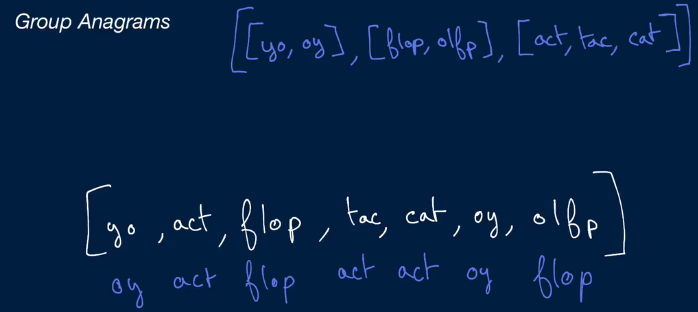 Group Anagrams
[[yo, oy], [flop, olfp], [act, tac, cat]]
[yo, act, flop, tac, cat, oy, olfp]
oy act flop act act oy flop